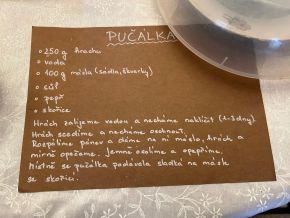 PUČÁLKA
250 g hrachu
voda
100 g másla (sádla, škvarky)
sůl
pepř
skořice
Hrách zalijeme vodou a necháme naklíčit (2-3 dny).
Hrách scedíme a necháme oschnout.
Rozpálíme pánev a dáme na ni máslo, hrách a
mírně opečeme. Jemně osolíme a opepříme.
Místně se pučálka podávala sladká na másle
se skořicí.